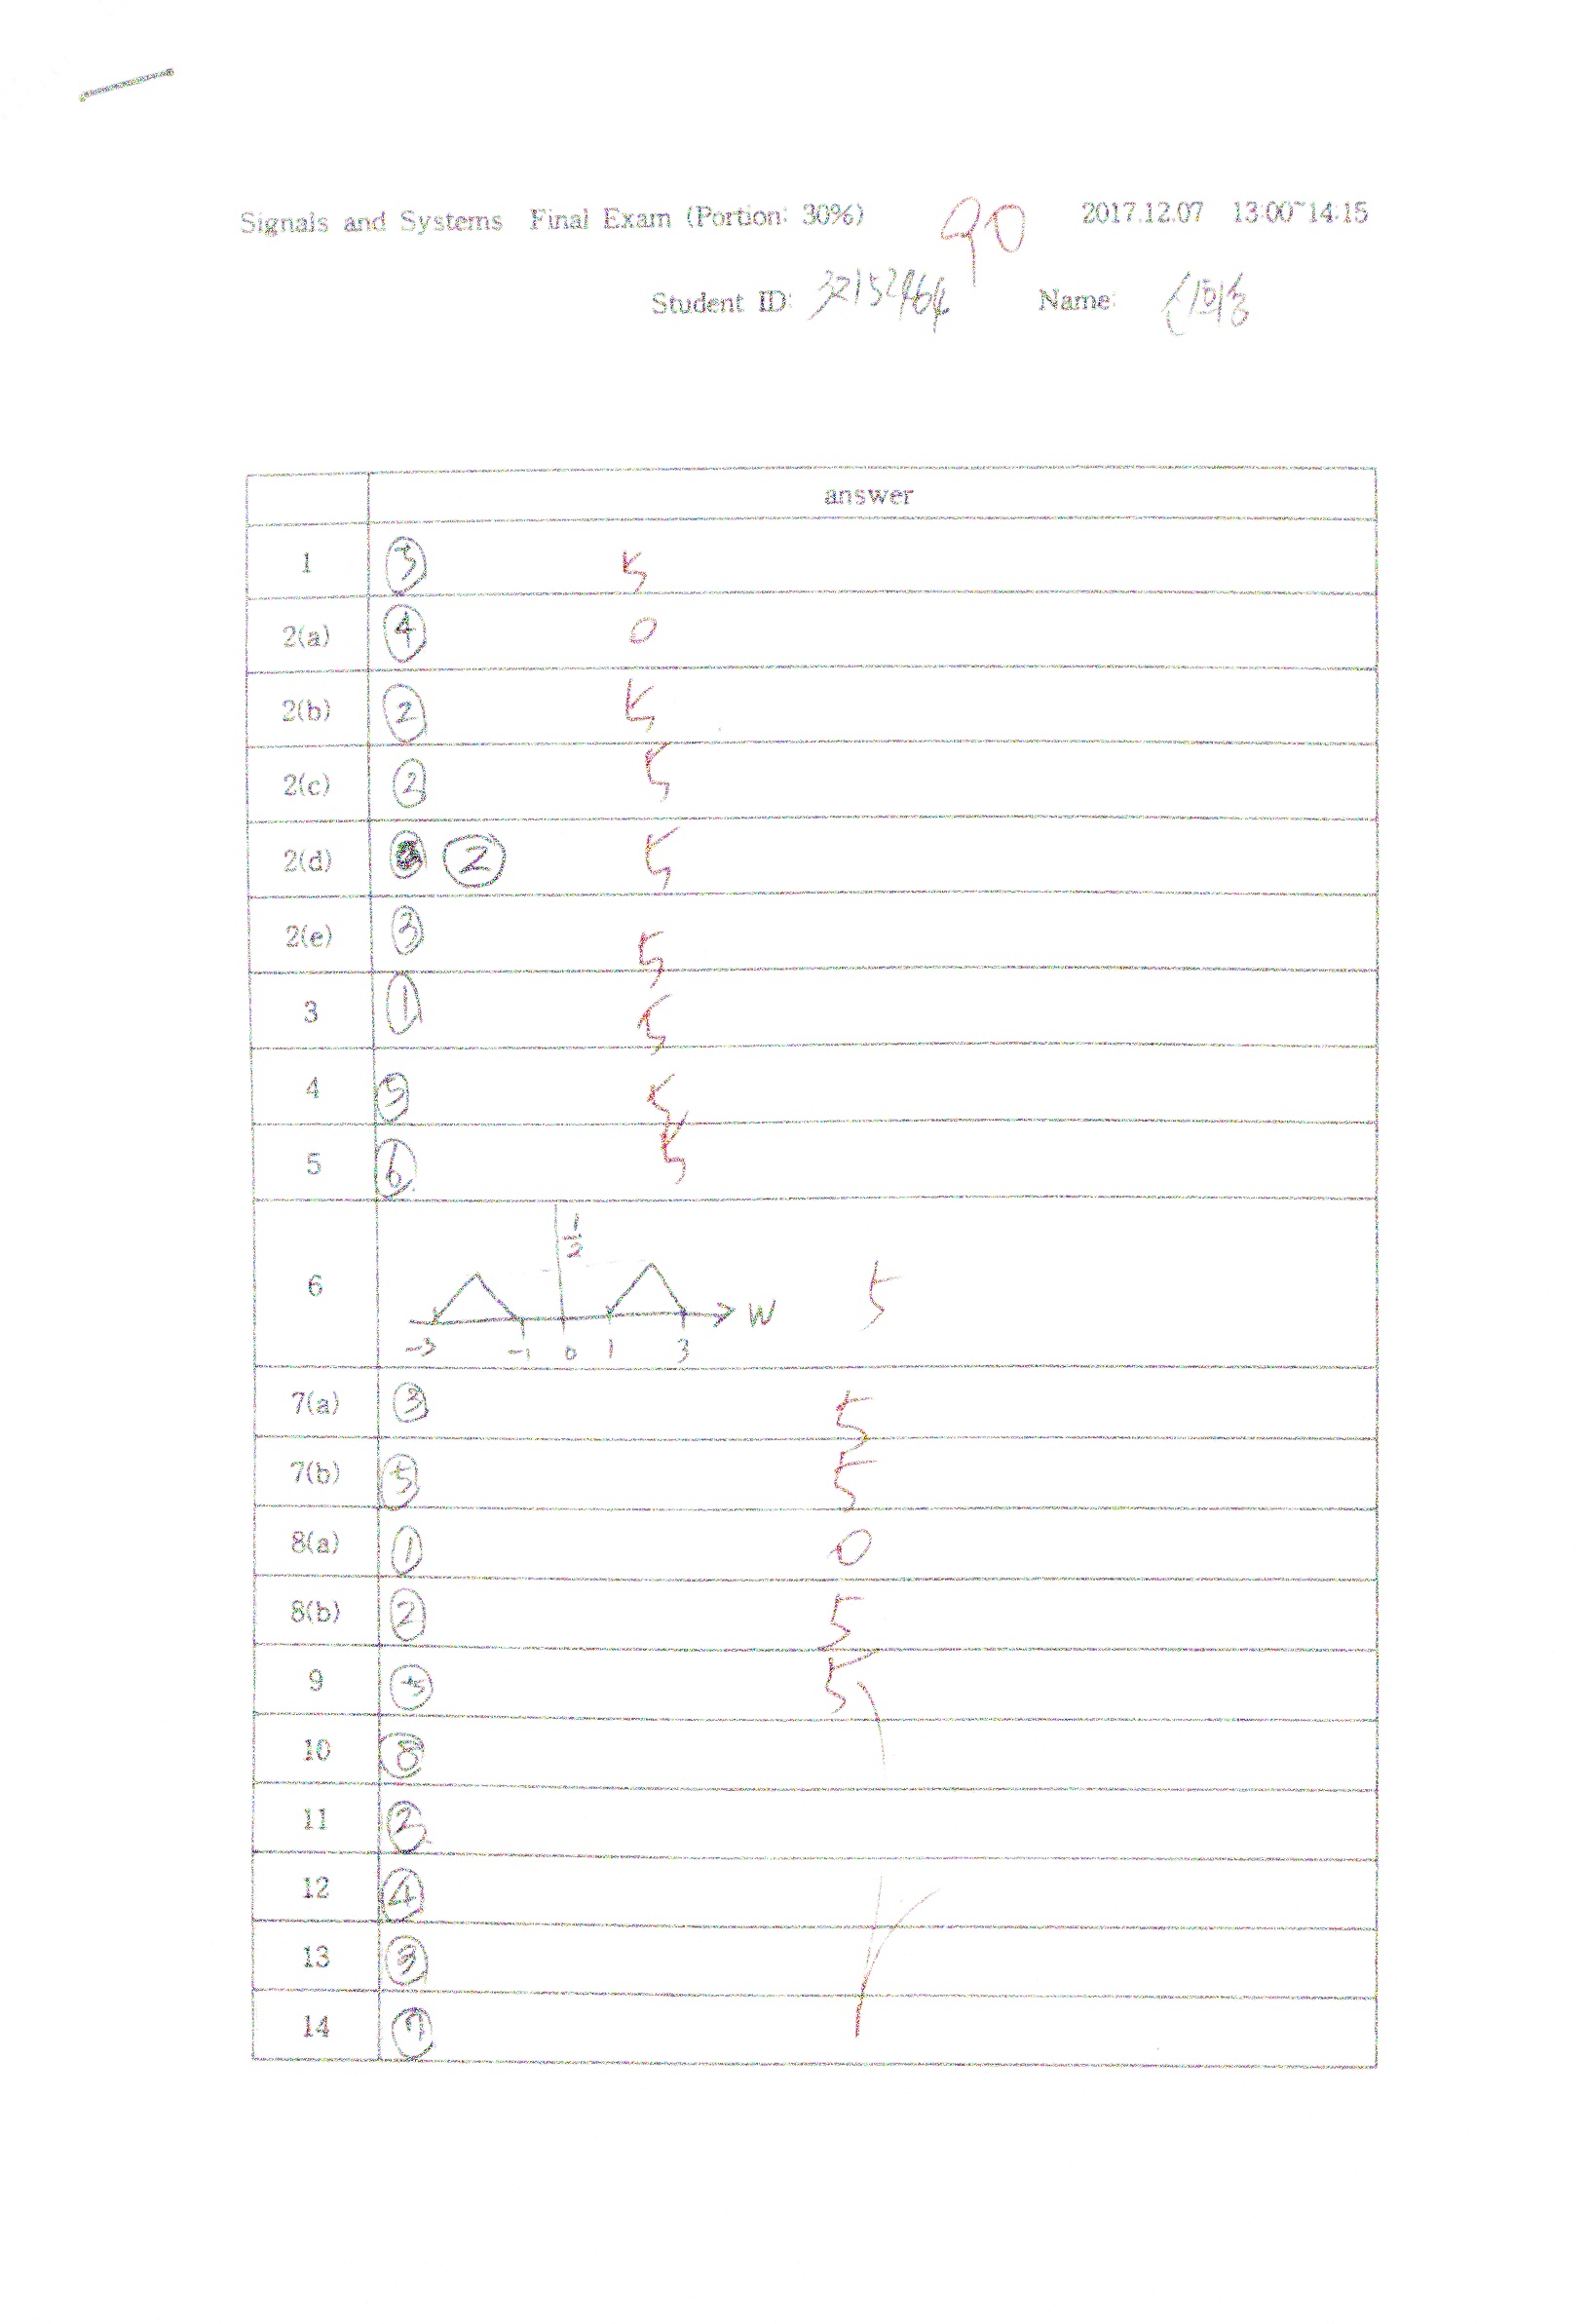 Signals and Systems Final Exam (Portion: 30%) 90 2017.12.07 13:00~14:15
Student ID: Name:
answer
1 ③ 5
2(a) ④ 0
2(b) ② 5
2(c) ② 5
2(d) ② 5
2(e) ③ 5
3 ① 5
4 5
5 ⑥ 5
1/2
6 W 5
-3 -1 0 1 3
7(a) ③ 5
7(b) ⑤ 5
8(a) ① 0
8(b) ② 5
9 5
10 ⑧
11 ②
12 ④
13 ③
14